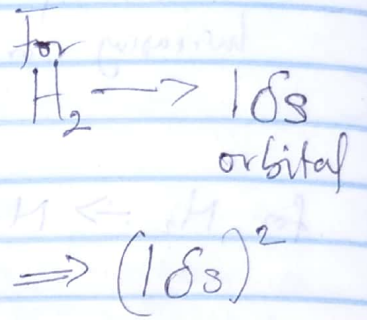 For
H₂ —> 1δs
orbital
=> (1δs)²